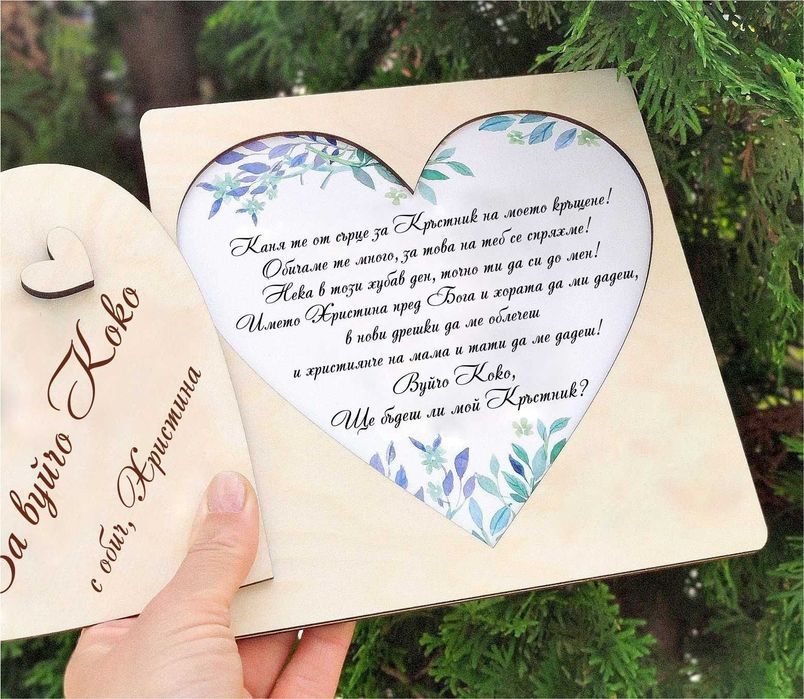 За вуйчо Коко
с обич, Христина
Каня те от сърце за Кръстник на моето кръщене!
Обичаме те много, за това на теб се спряхме!
Нека в този хубав ден, точно ти да си до мен!
Името Христина пред Бога и хората да ми дадеш,
в нови дрешки да ме облечеш
и християнче на мама и тати да ме дадеш!
Вуйчо Коко,
Ще бъдеш ли мой Кръстник?